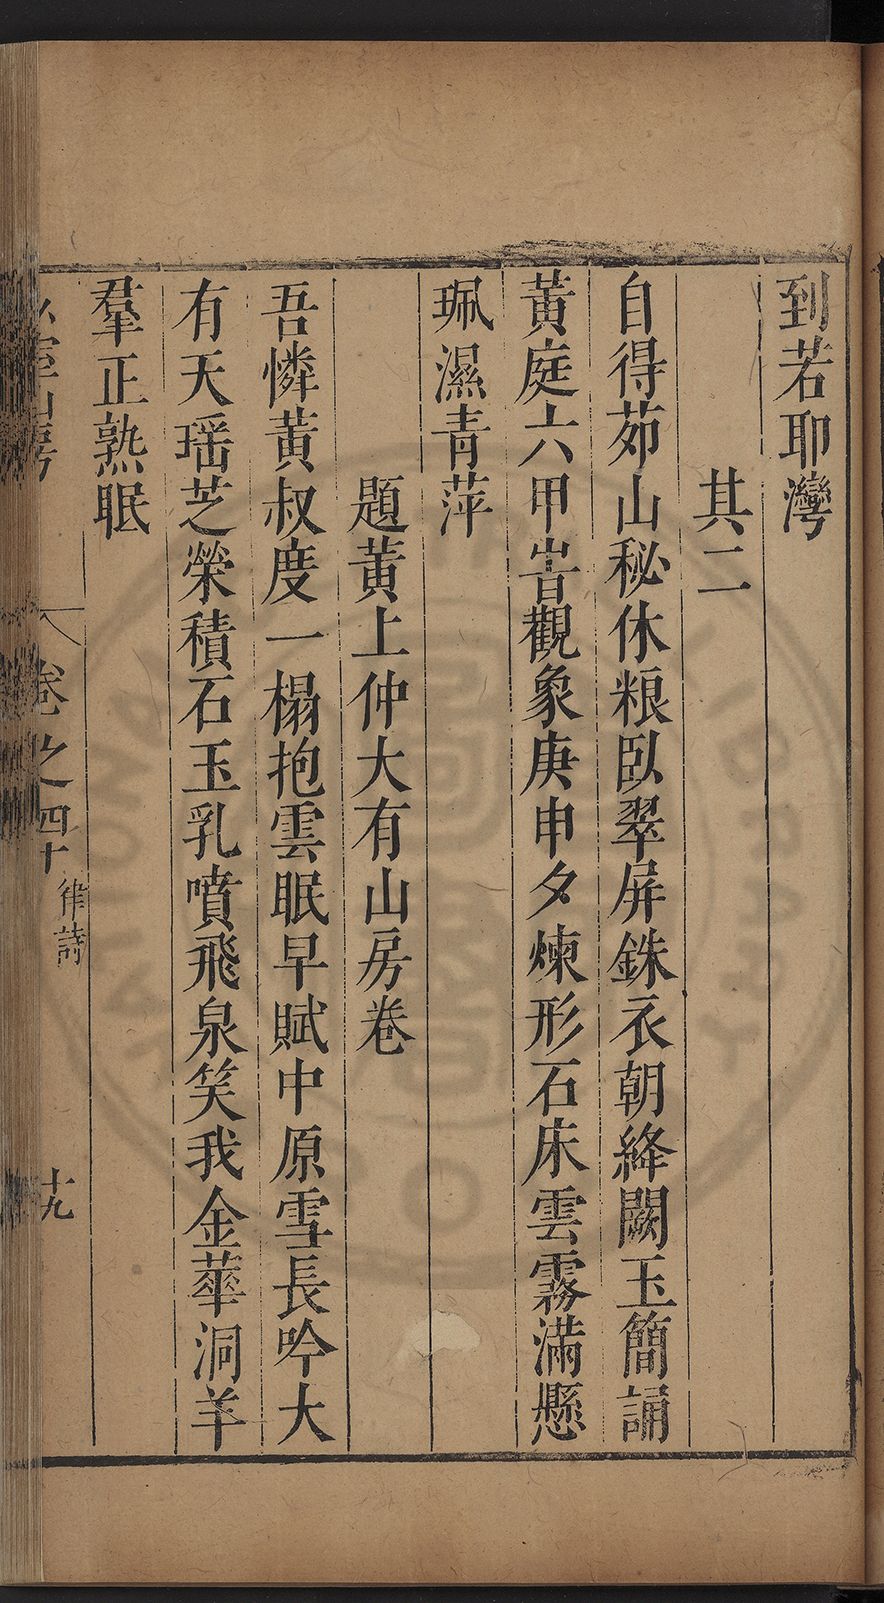 到若耶灣
其二
自得茆山秘休粮臥翠屏銖衣朝絳闕玉簡誦
黃庭六甲旹觀象庚申夕煉形石床雲霧滿懸
珮濕青萍
題黃上仲大有山房卷
吾憐黃叔度一榻抱雲眠早賦中原雪長吟大
有天瑶芝榮積石玉乳噴飛泉笑我金華洞羊
羣正熟眠
山房
卷之四十
律詩
十九